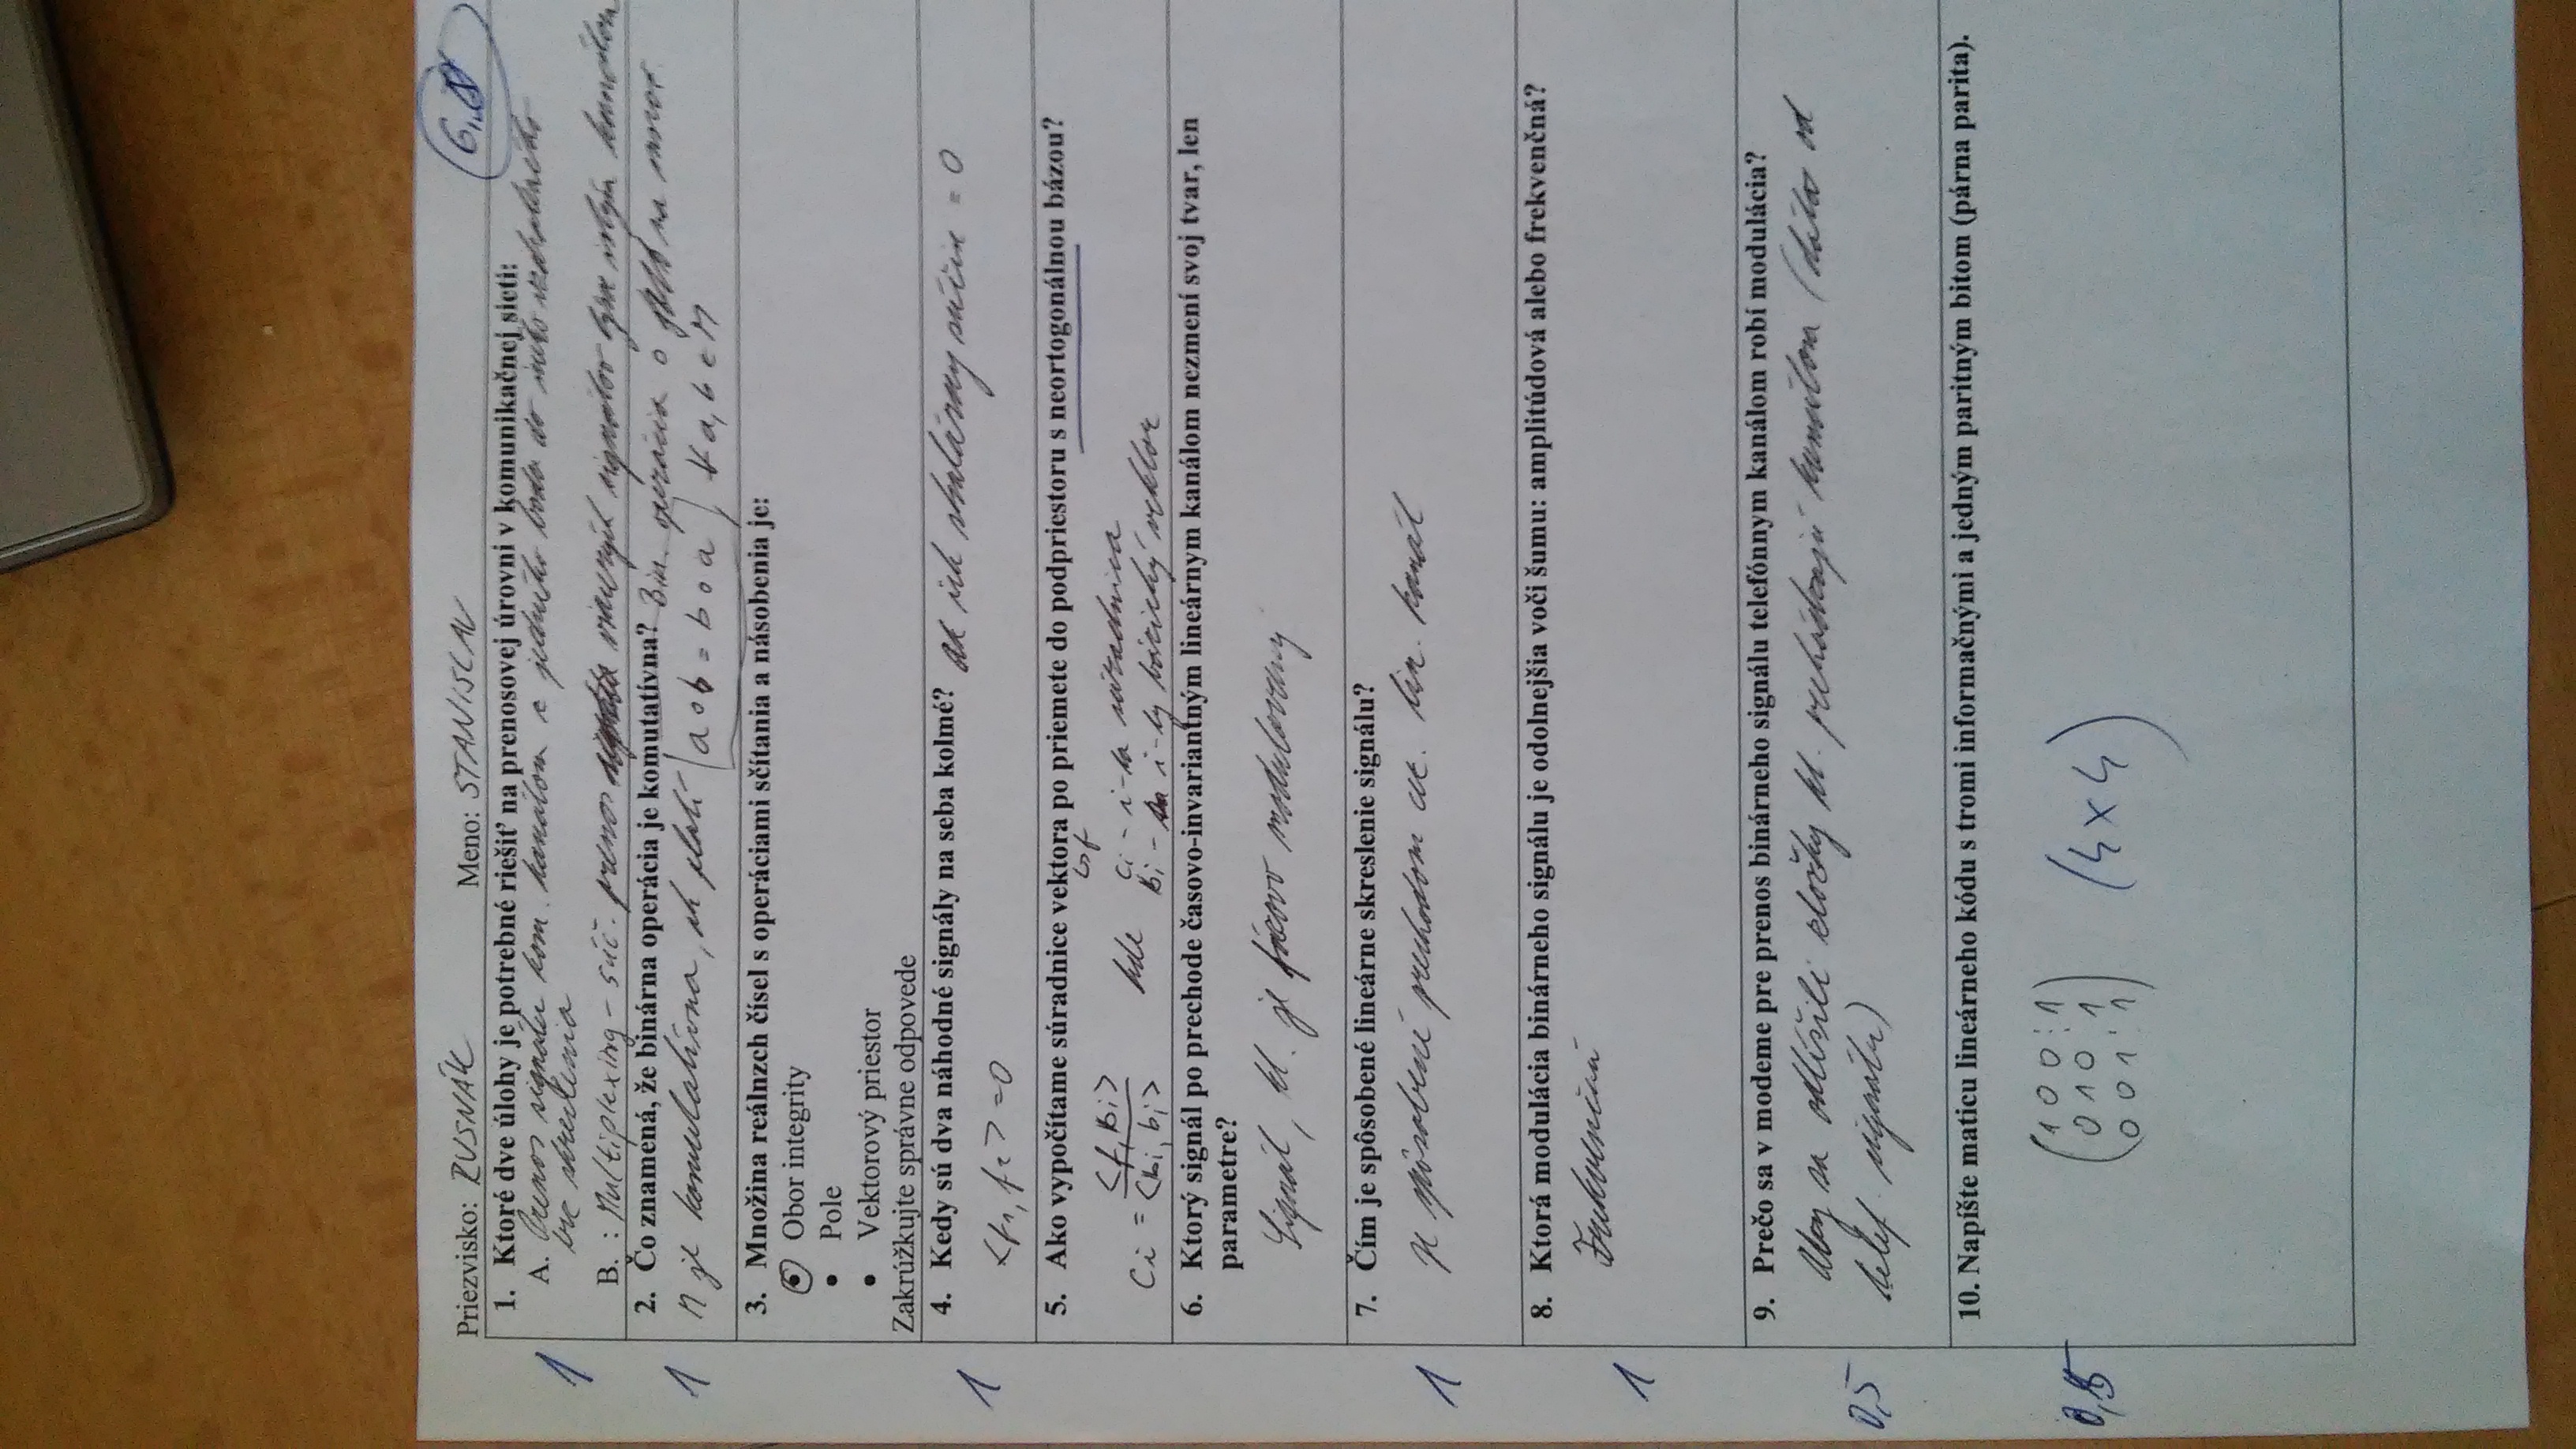 Priezvisko: RUSNÁK Meno: STANISLAV
1. Ktoré dve úlohy je potrebné riešiť na prenosovej úrovni v komunikačnej sieti:
A. Prenos signálu kom. kanálom z jedného bodu do iného vzdialeného
bez skreslenia
1
B. : Multiplexing - súč. prenos viacerých signálov tým istým kanálom
2. Čo znamená, že binárna operácia je komutatívna? Bin. operácia o na množ.
1
M je komutatívna, ak platí a o b = b o a, ∀ a, b ∈ M
3. Množina reálnzch čísel s operáciami sčítania a násobenia je:
• Obor integrity
• Pole
• Vektorový priestor
Zakrúžkujte správne odpovede
4. Kedy sú dva náhodné signály na seba kolmé? ak ich skalárny súčin = 0
1
<f1, f2> = 0
5. Ako vypočítame súradnice vektora po priemete do podpriestoru s neortogonálnou bázou?
ci = <f, bi> / <bi, bi> kde ci - i-ta súradnica
bi - i-ty bázický vektor
6. Ktorý signál po prechode časovo-invariantným lineárnym kanálom nezmení svoj tvar, len
parametre?
Signál, kt. je fázovo modulovaný
7. Čím je spôsobené lineárne skreslenie signálu?
je spôsobené prechodom cez. lin. kanál
1
8. Ktorá modulácia binárneho signálu je odolnejšia voči šumu: amplitúdová alebo frekvenčná?
Frekvenčná
1
9. Prečo sa v modeme pre prenos binárneho signálu telefónnym kanálom robí modulácia?
Aby sa odlíšili zložky kt. prechádzajú kanálom (dáta od
0,5
telef. signálu)
10. Napíšte maticu lineárneho kódu s tromi informačnými a jedným paritným bitom (párna parita).
1 0 0 1
0 1 0 1
0 0 1 1
(4x4)